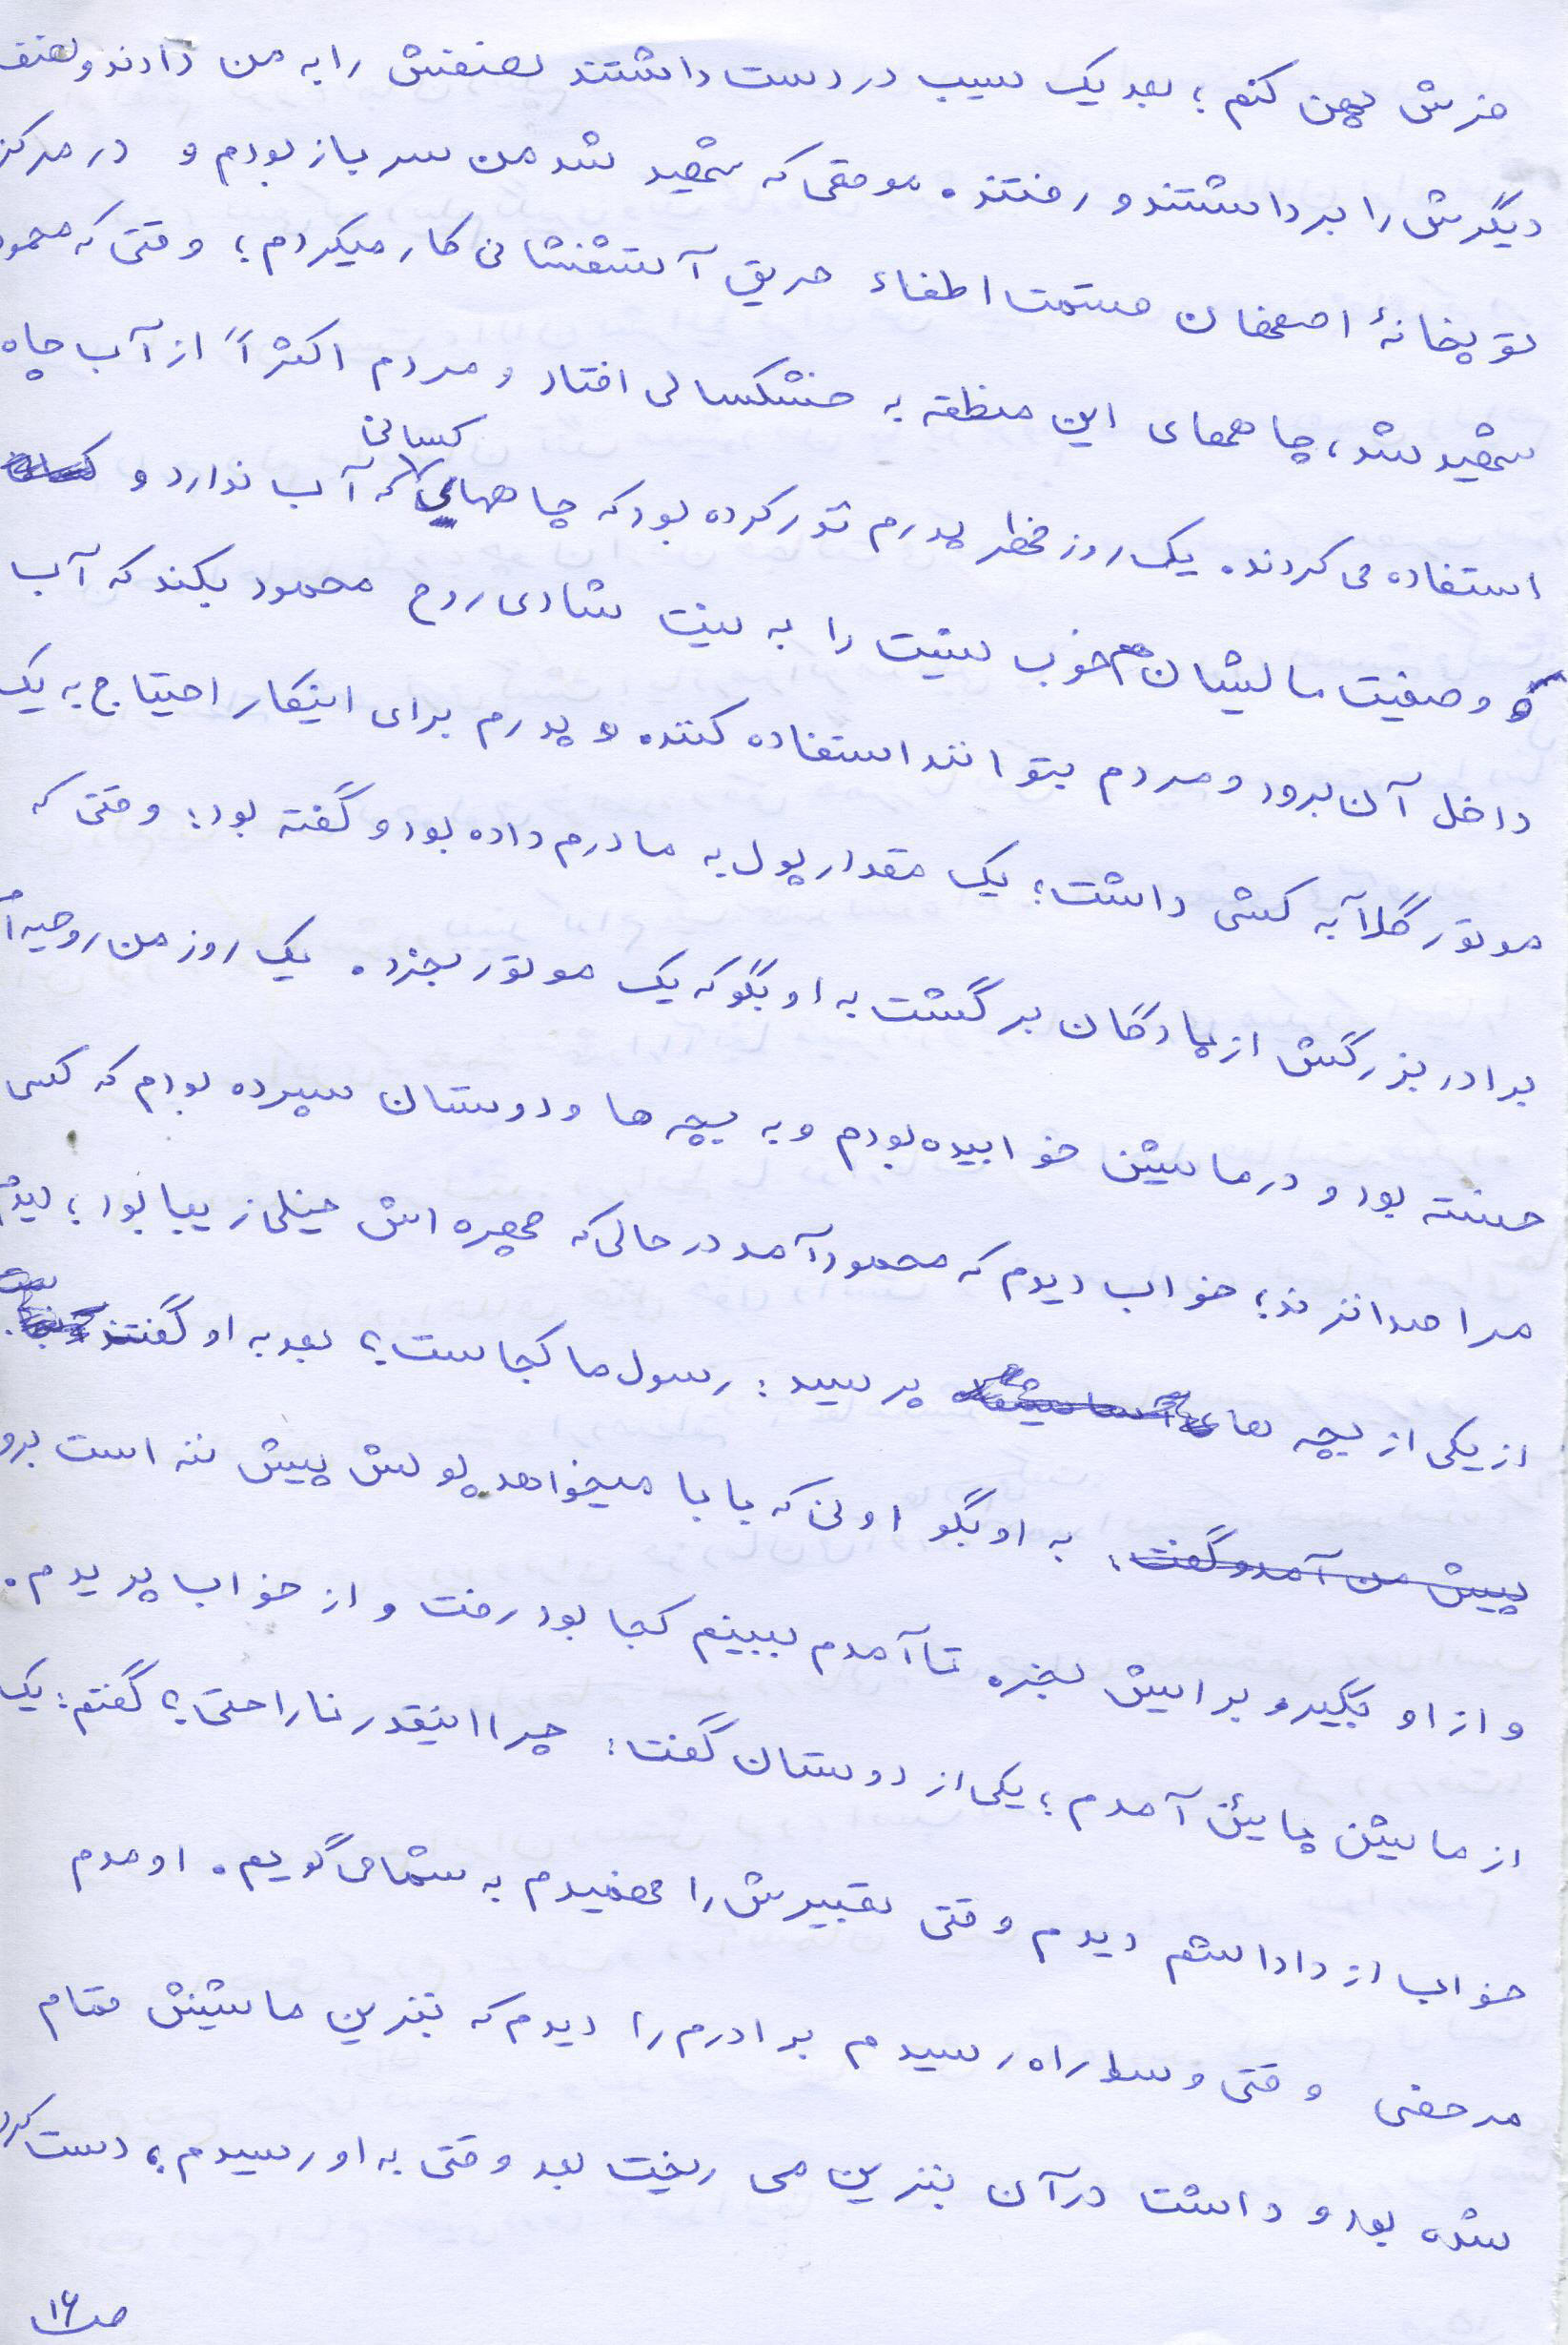 فرش پهن کنم؛ بعد یک سیب در دست داشتند نصفش را به من دادند و نصف
دیگرش را برداشتند و رفتند. موقعی که شهید شد من سرباز بودم و در مرکز
توپخانهٔ اصفهان قسمت اطفاء حریق آتشفشانی کار میکردم؛ وقتی که محمود
شهید شد، چاههای این منطقه به خشکسالی افتاد و مردم اکثراً از آب چاه
استفاده می کردند. یک روز فخطر پدرم نذر کرده بود که چاههای کسانی که آب ندارد و
و وضعیت مالیشان هم خوب نیست را به نیت شادی روح محمود بکند که آب
داخل آن برود و مردم بتوانند استفاده کنند. و پدرم برای اینکار احتیاج به یک
موتور گلآبه کشی داشت؛ یک مقدار پول به مادرم داده بود و گفته بود: وقتی که
برادر بزرگش از پادگان برگشت به او بگو که یک موتور بخرد. یک روز من روحیه‌اً
خسته بود و در ماشین خوابیده بودم و به بچه ها و دوستان سپرده بودم که کسی
مرا صدا نزند؛ خواب دیدم که محمود آمد در حالی که چهره اش خیلی زیبا بود؛ دیدم
از یکی از بچه های پرسید: رسول ما کجاست؟ بعد به او گفتند
پیش من آمد و گفت: به او بگو اونی که بابا میخواهد پولش پیش ننه است برو
و از او بگیر و برایش بخر. تا آمدم ببینم کجا بود رفت و از خواب پریدم.
از ماشین پایئن آمدم؛ یکی از دوستان گفت: چرا اینقدر ناراحتی؟ گفتم: یک
خواب از داداشم دیدم وقتی تعبیرش را فهمیدم به شما می گویم. اومدم
مرخصی وقتی وسط راه رسیدم برادرم را دیدم که بنزین ماشینش تمام
شده بود و داشت در آن بنزین می ریخت بعد وقتی به او رسیدم، دست کرد
ص۱۶